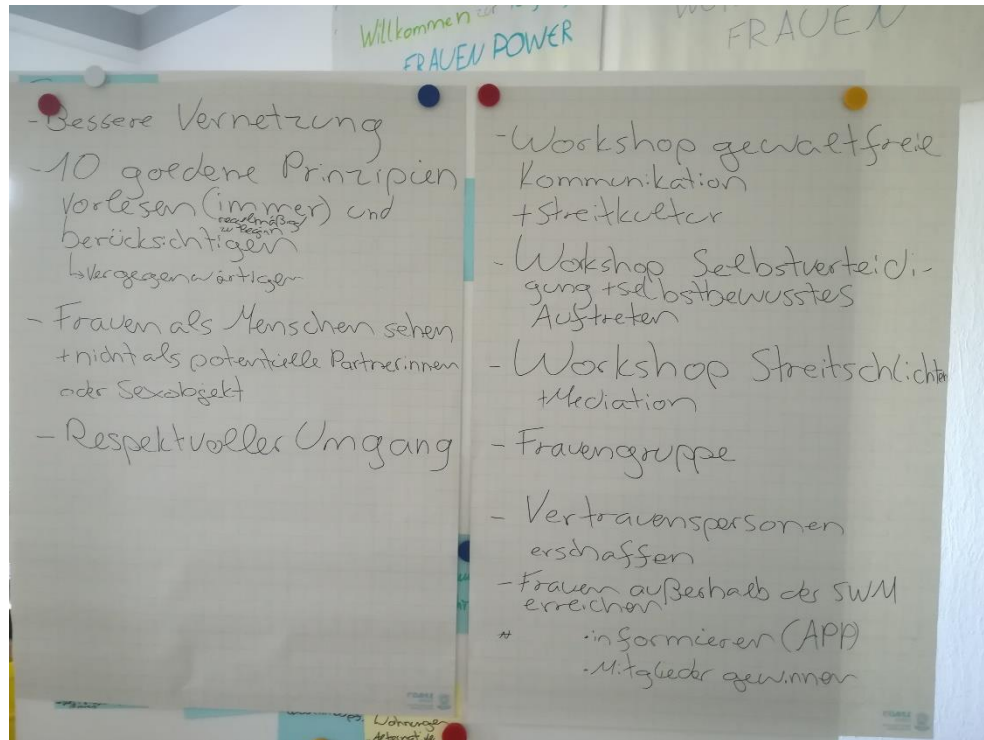 Willkommen zur
FRAUEN POWER
FRAUEN
- Bessere Vernetzung
- 10 goldene Prinzipien
vorlesen (immer) und
regelmäßig
zu Beginn
berücksichtigen
↳ vergegenwärtigen
- Frauen als Menschen sehen
+ nicht als potentielle Partner.innen
oder Sexobjekt
- Respektvoller Umgang
- Workshop gewaltfreie
Kommunikation
+ Streitkultur
- Workshop Selbstverteidi-
gung + selbstbewusstes
Auftreten
- Workshop Streitschlichter
+ Mediation
- Frauengruppe
- Vertrauenspersonen
erschaffen
- Frauen außerhalb der SWM
erreichen
· informieren (APP)
· Mitglieder gewinnen
Wohnungen